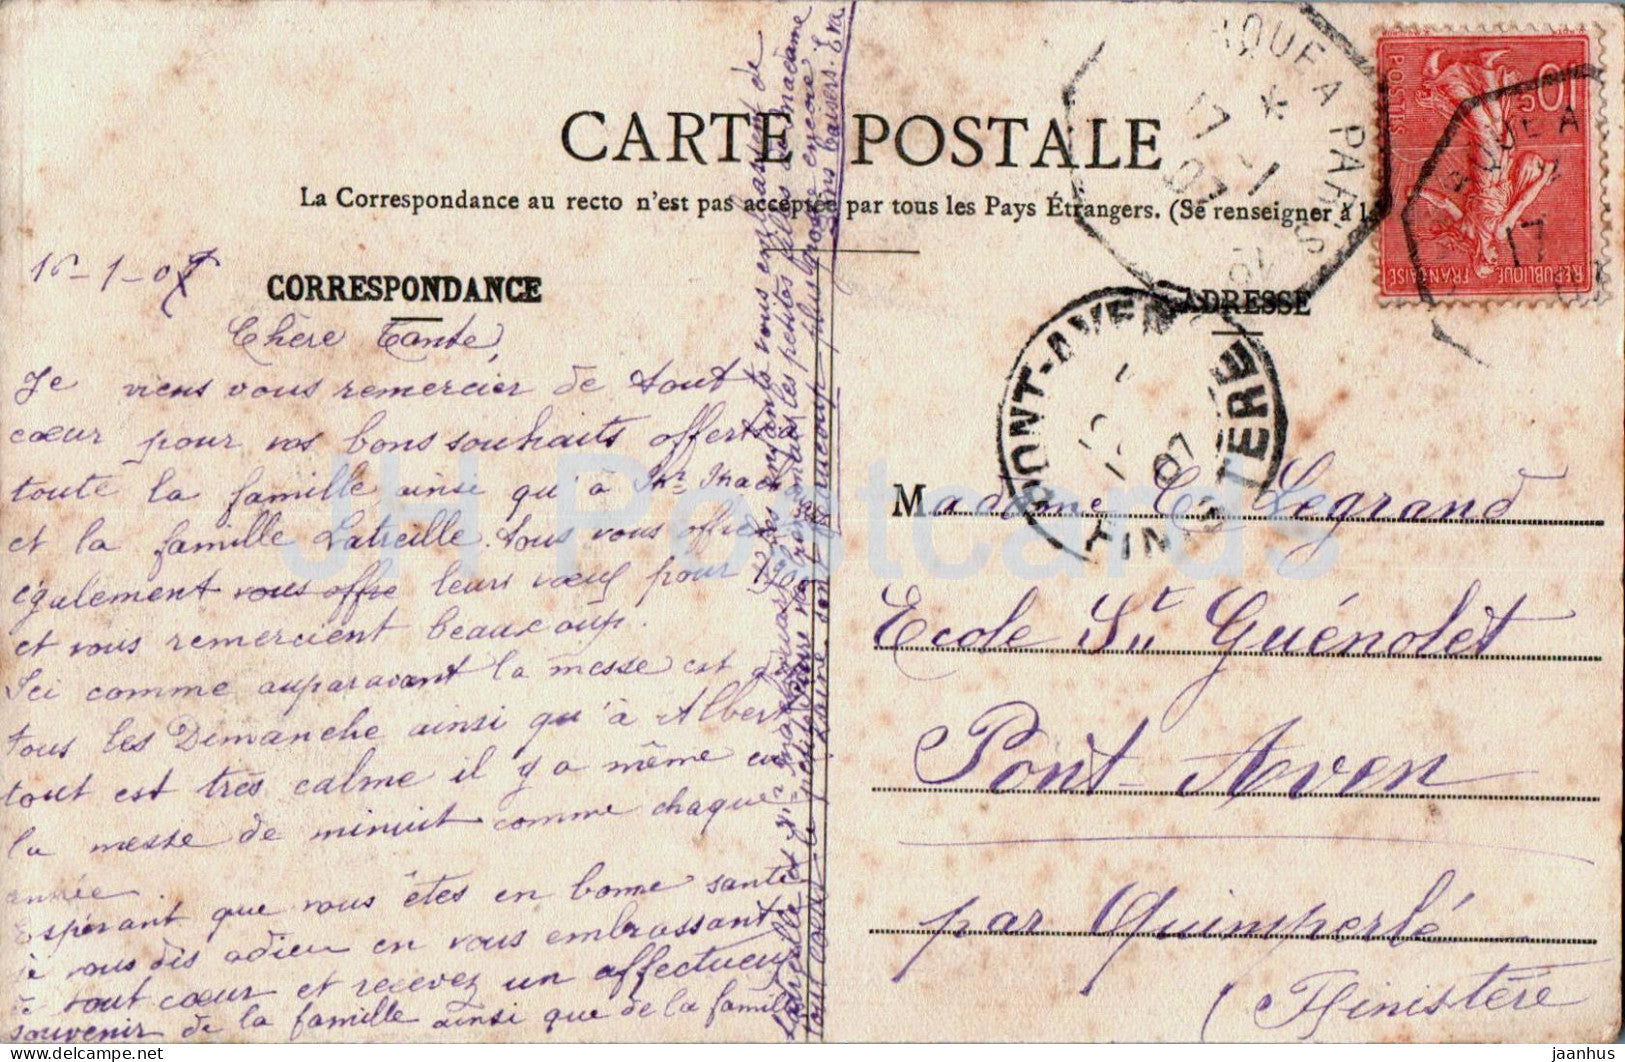 CARTE POSTALE
La Correspondance au recto n'est pas acceptée par tous les Pays Étrangers. (Se renseigner à la
CORRESPONDANCE
16-1-07
Chère Tante,
Je viens vous remercier de tout
cœur pour vos bons souhaits offerts à
toute la famille ainsi qu'à Mr
et la famille Latreille. tous vous offrent
également vous offre leurs vœux pour
et vous remercient beaucoup.
Ici comme auparavant la messe est
tous les Dimanche ainsi qu'à Albert
tout est très calme il y a même eu
la messe de minuit comme chaque
année
Espérant que vous êtes en bonne santé
je vous dis adieu en vous embrassant
de tout cœur et recevez un affectueux
souvenir de la famille ainsi que de la famille
Latreille et
les enfants vous embrassent de
les petites filles de madame
beaucoup plus grosse encore
bons baisers. Eva
ADRESSE
Madame C Legrand
Ecole St Guénolet
Pont-Aven
par Quimperlé
(Finistère
PONT-AVEN
FINISTERE
07
QUE A PARIS
17
-1
07
QUE A
17
10c
POSTES
REPUBLIQUE FRANÇAISE
JH Postcards
jaanhus © delcampe.net